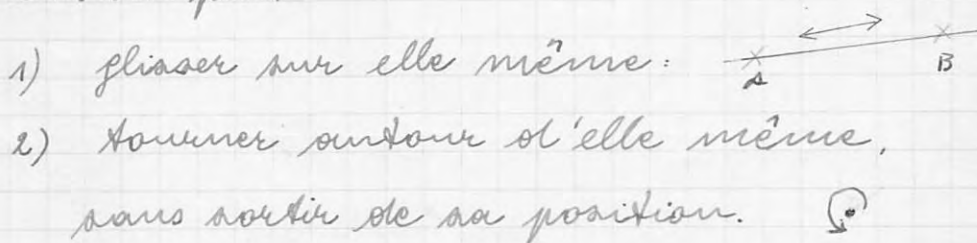 1) glisser sur elle même :
A B
2) tourner autour d'elle même,
sans sortir de sa position.